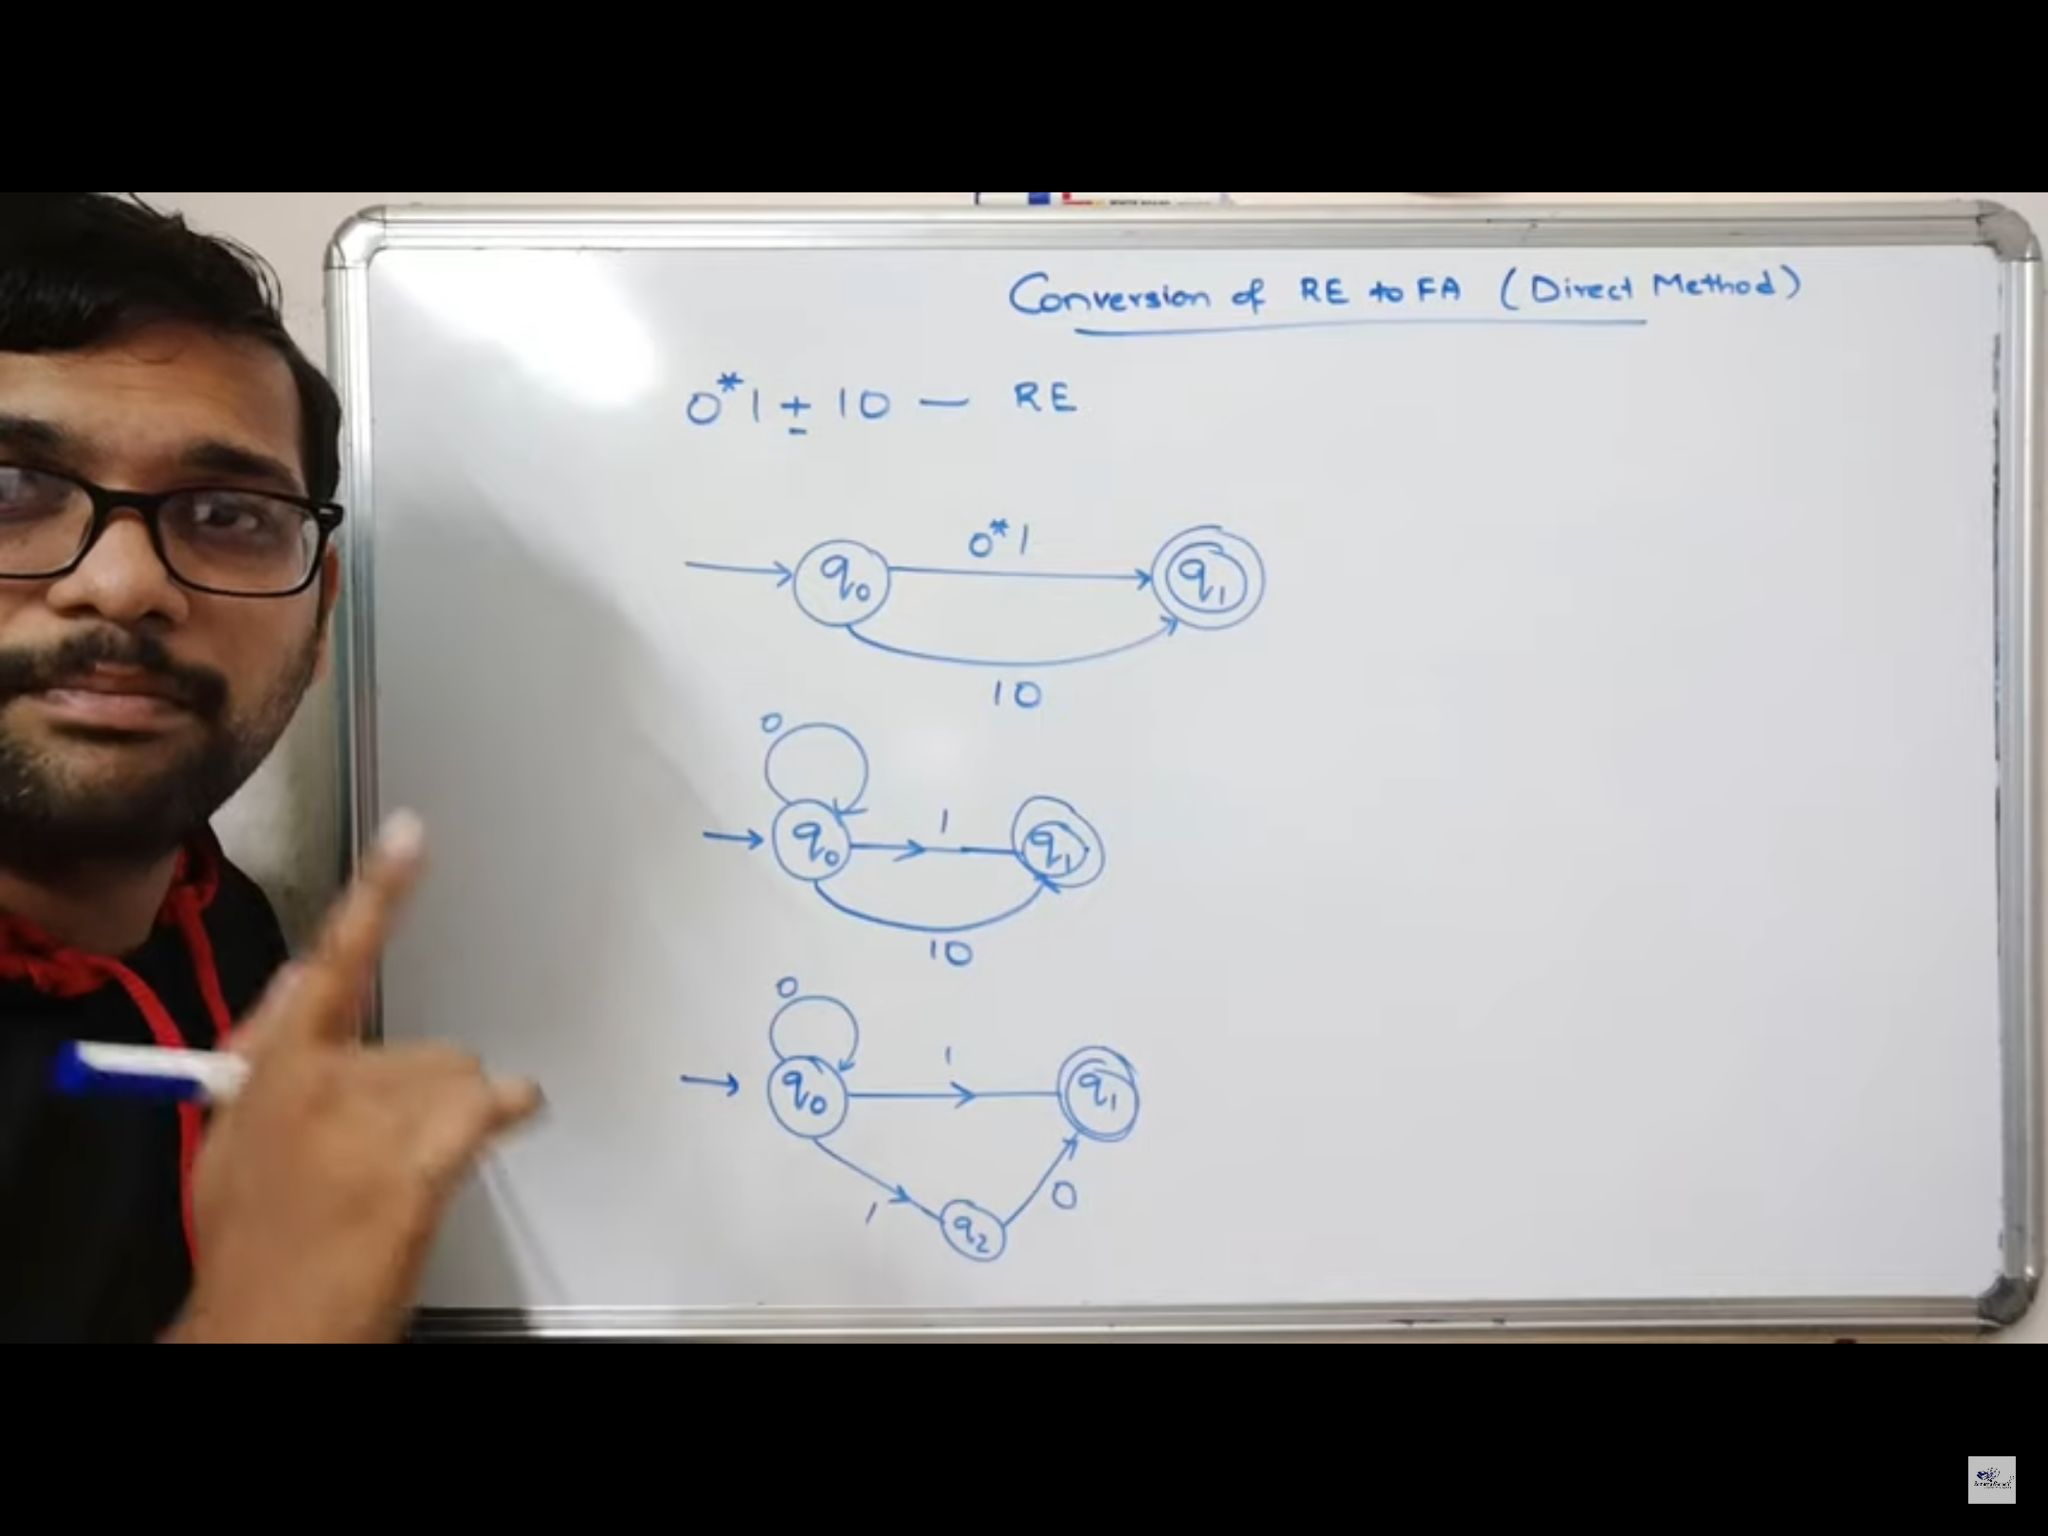 Conversion of RE to FA (Direct Method)
0*1 + 10 — RE
0*1
q0 q1
10
0
1
q0 q1
10
0
1
q0 q1
1 0
q2